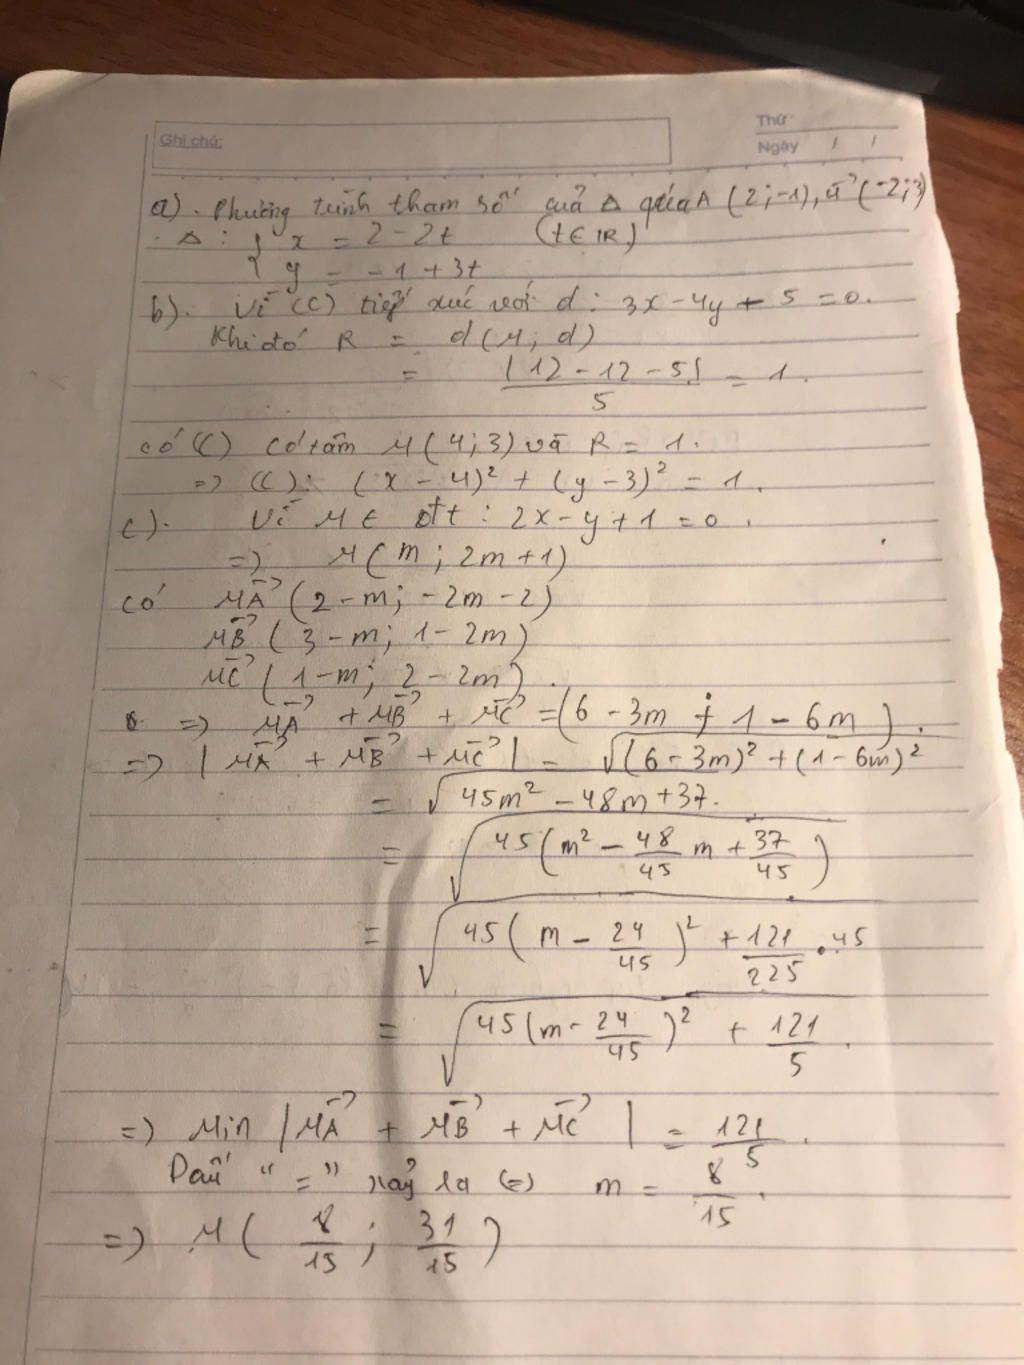 Ghi chú:
Thứ:
Ngày / /
a). Phương trình tham số của Δ qua A (2;-1), u⃗ (-2;3)
Δ: { x = 2 - 2t (t ∈ IR)
y = -1 + 3t
b). Vì (C) tiếp xúc với d: 3x - 4y - 5 = 0.
Khi đó R = d(M, d)
= |12 - 12 - 5| / 5 = 1.
có (C) có tâm M(4;3) và R = 1.
=> (C): (x - 4)² + (y - 3)² = 1.
c). Vì M ∈ đt: 2x - y + 1 = 0.
=> M(m; 2m+1)
có MA⃗ (2-m; -2m-2)
MB⃗ (3-m; 1-2m)
MC⃗ (1-m; 2-2m).
=> MA⃗ + MB⃗ + MC⃗ = (6 - 3m; 1 - 6m).
=> |MA⃗ + MB⃗ + MC⃗| = √((6-3m)² + (1-6m)²)
= √(45m² - 48m + 37).
= √(45(m² - 48/45 m + 37/45))
= √(45(m - 24/45)² + 121/225 . 45)
= √(45(m - 24/45)² + 121/5).
=> Min |MA⃗ + MB⃗ + MC⃗| = 121/5.
Dấu "=" xảy ra (=) m = 8/15.
=> M(8/15; 31/15)